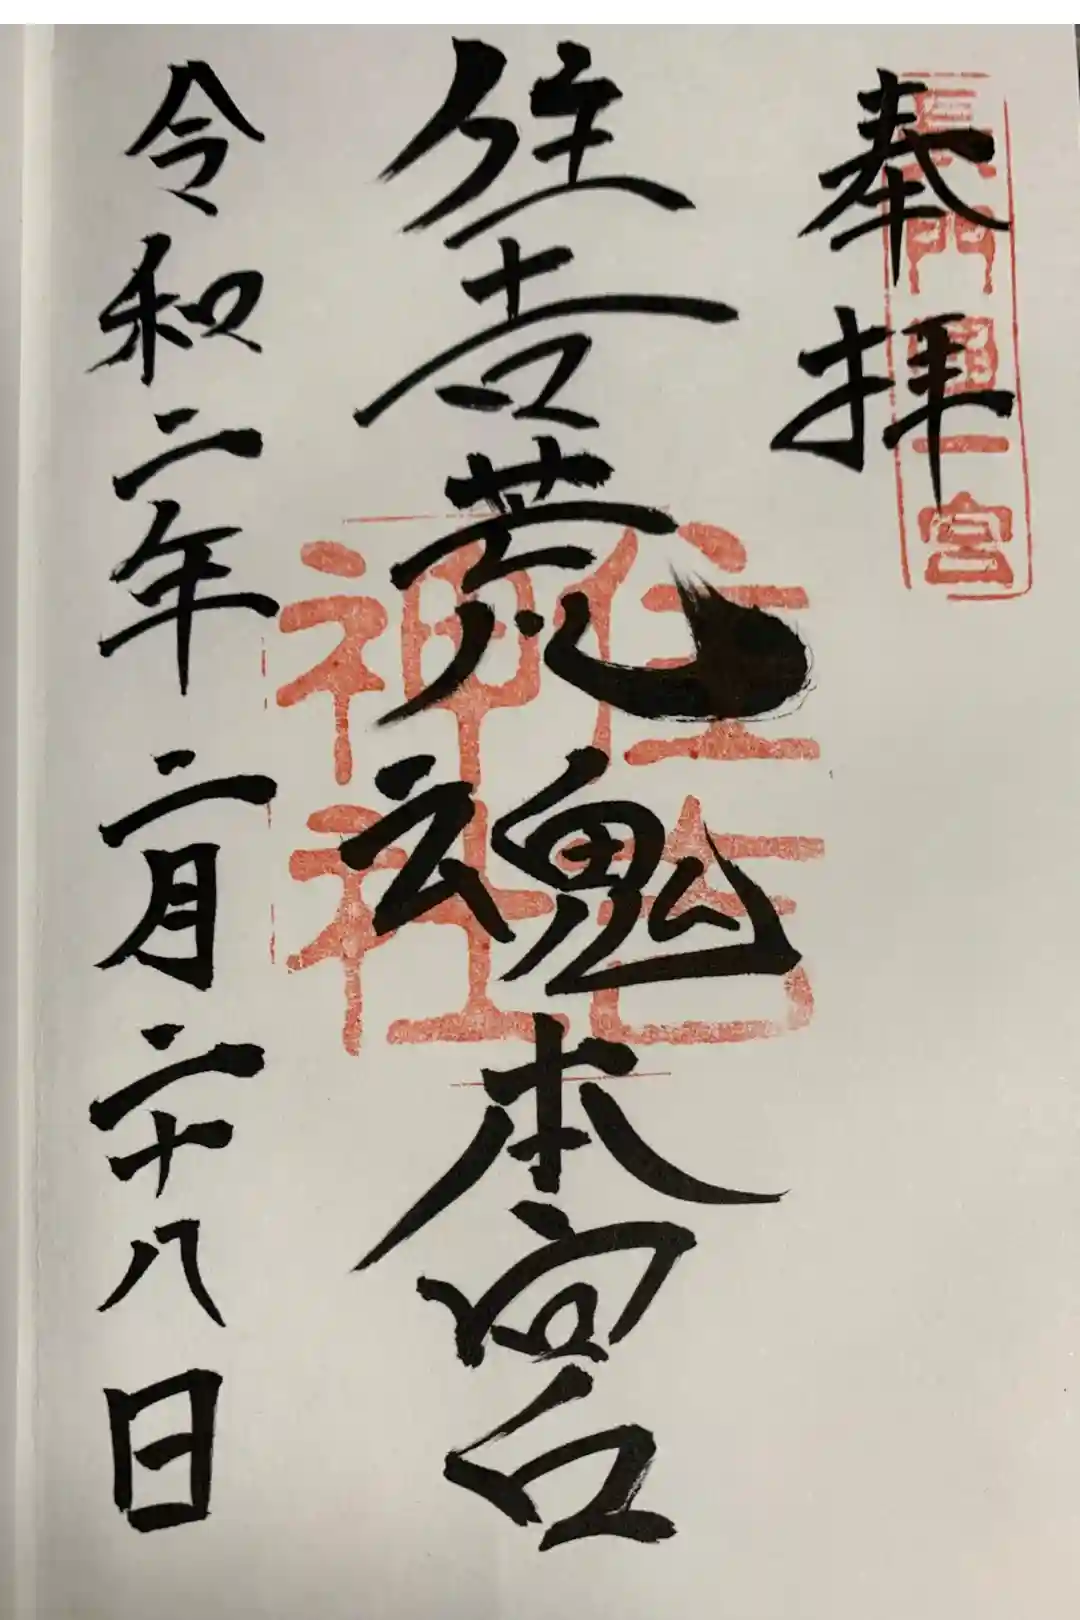 奉拝
長門國一宮
住吉荒魂本宮
住吉
神社
令和二年二月二十八日